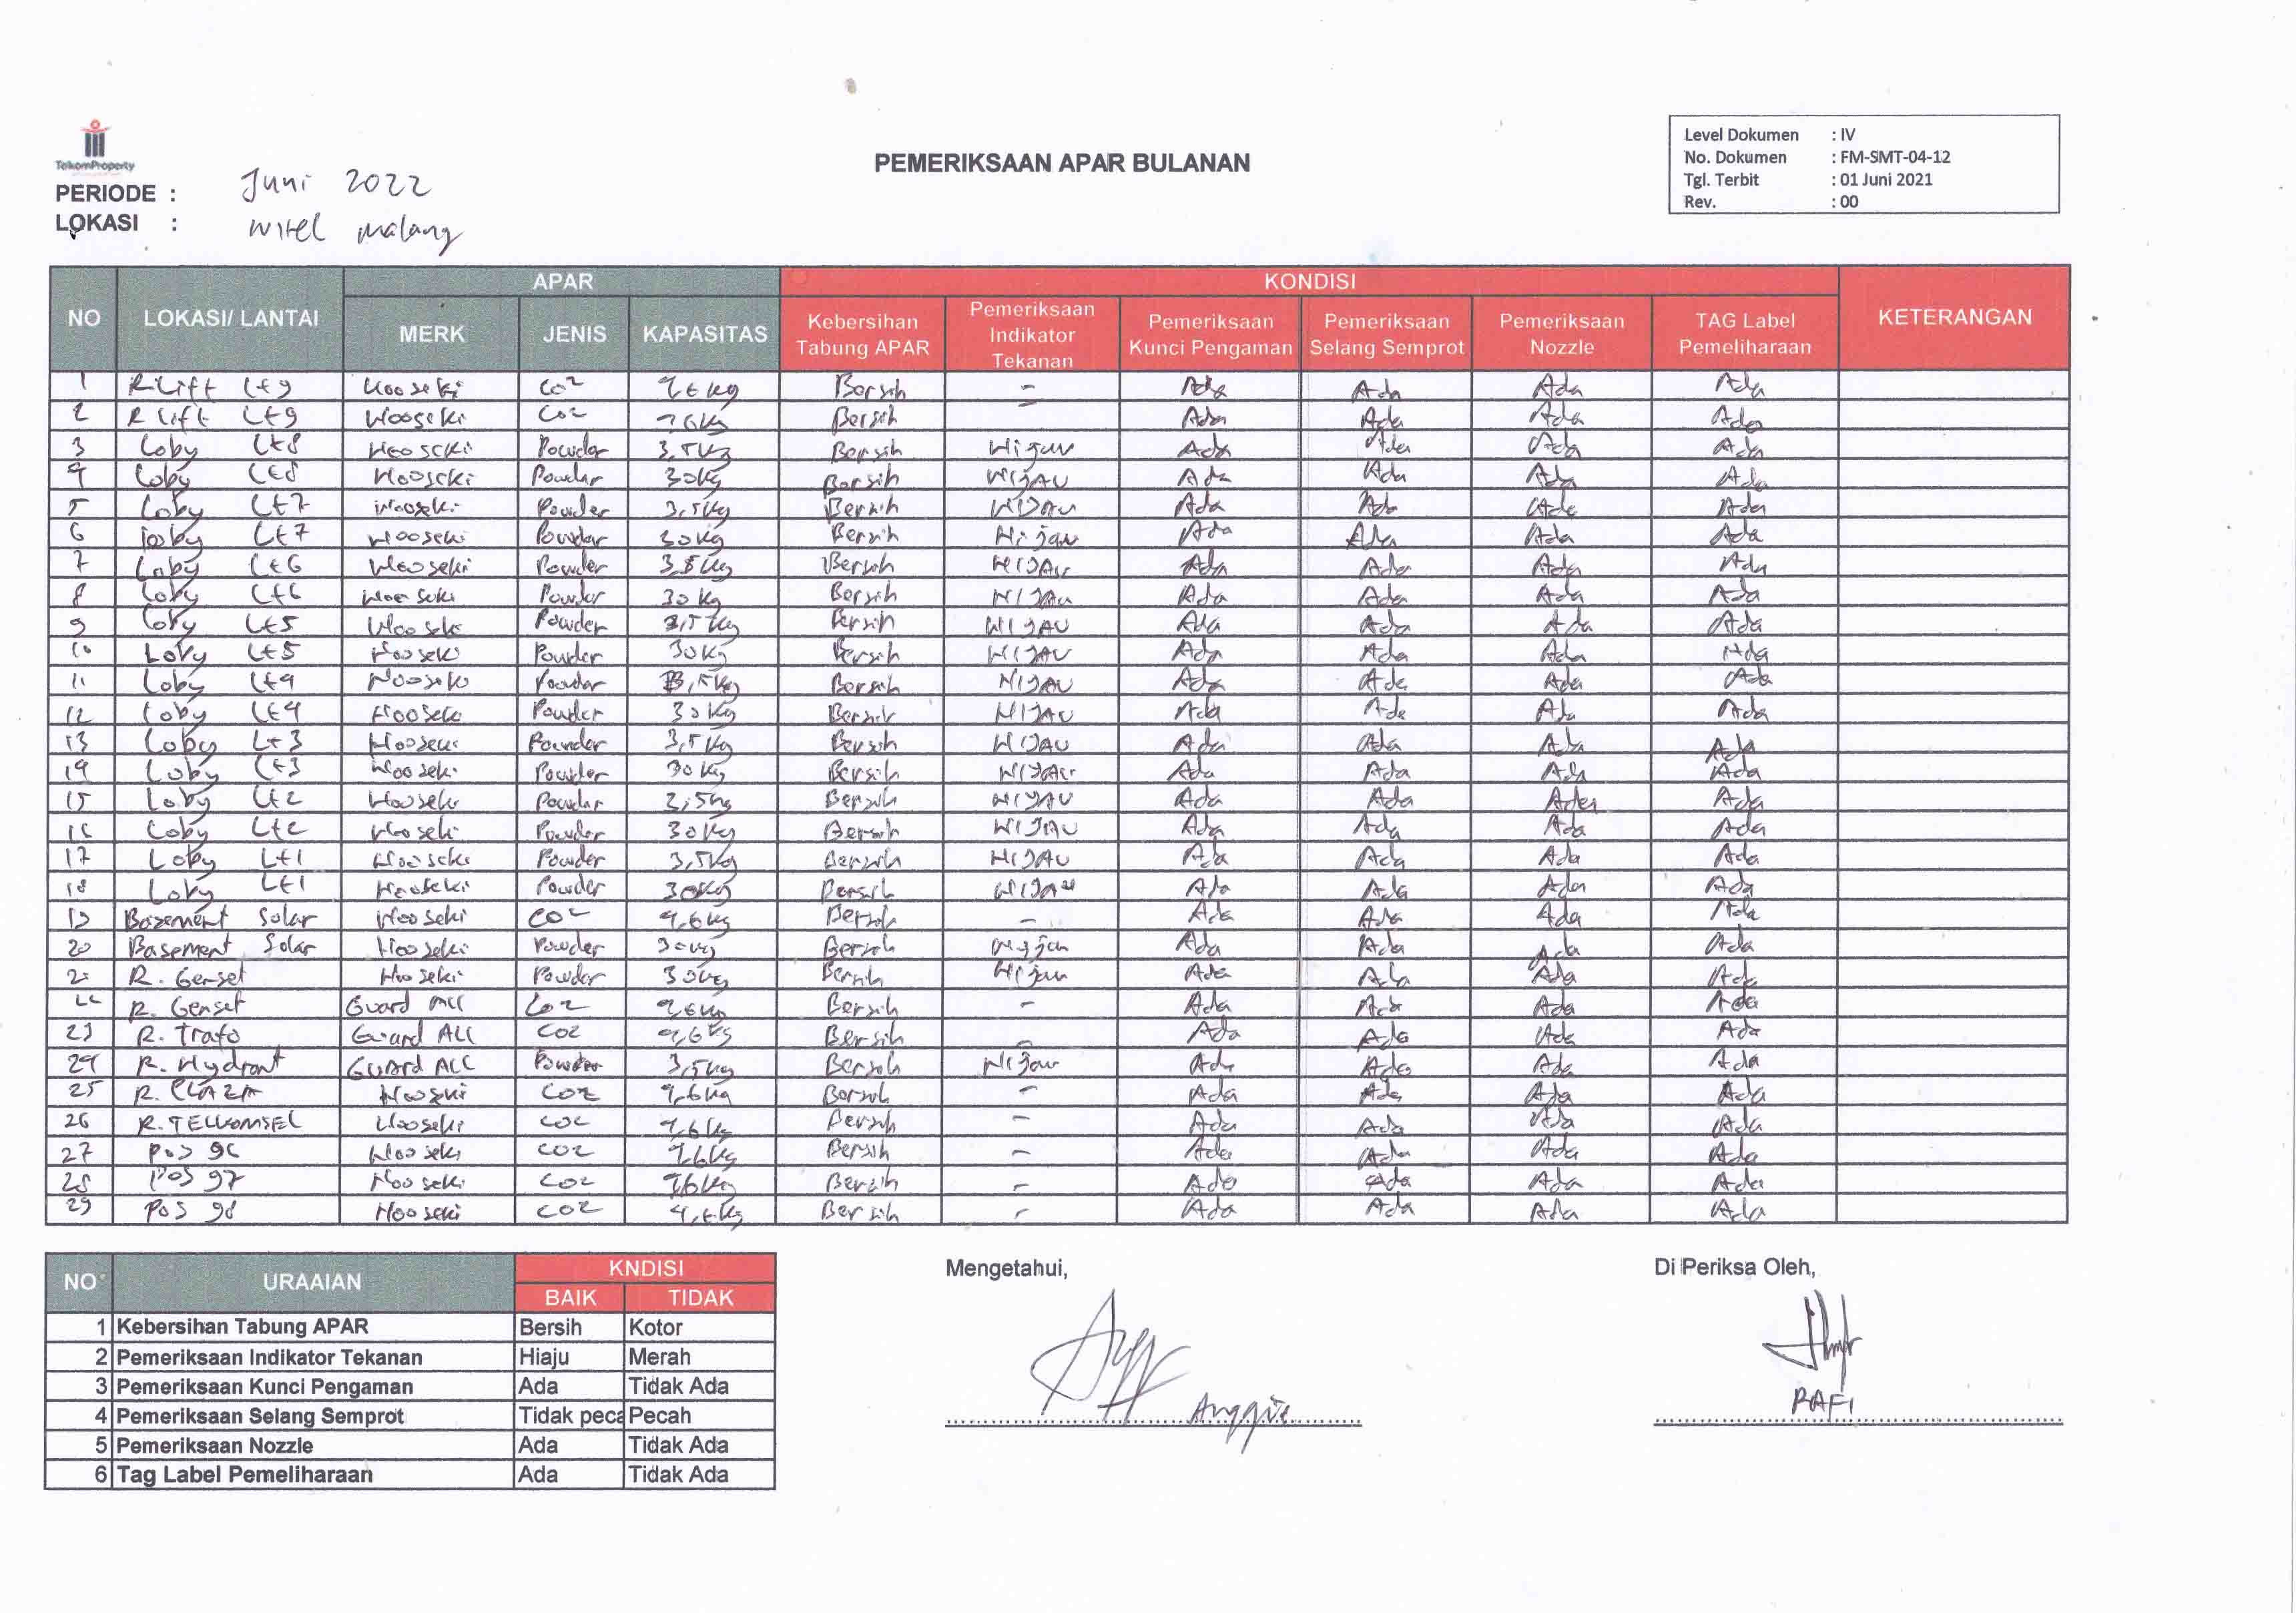 TelkomProperty
PEMERIKSAAN APAR BULANAN
Level Dokumen : IV
No. Dokumen : FM-SMT-04-12
Tgl. Terbit : 01 Juni 2021
Rev. : 00
PERIODE : Juni 2022
LOKASI : witel malang
NO LOKASI/ LANTAI APAR KONDISI KETERANGAN
MERK JENIS KAPASITAS Kebersihan Tabung APAR Pemeriksaan Indikator Tekanan Pemeriksaan Kunci Pengaman Pemeriksaan Selang Semprot Pemeriksaan Nozzle TAG Label Pemeliharaan
1 R Lift Lt 9 Hooseki Co2 Bersih - Ada Ada Ada Ada
2 R Lift Lt 9 Hooseki Co2 Bersih - Ada Ada Ada Ada
3 Loby Lt 8 Hooseki Powder 3,5 Kg Bersih Hijau Ada Ada Ada Ada
4 Loby Lt 8 Hooseki Powder 30 Kg Bersih HIJAU Ada Ada Ada Ada
5 Loby Lt 7 Hooseki Powder 3,5 Kg Bersih HIJAU Ada Ada Ada Ada
6 Loby Lt 7 Hooseki Powder 30 Kg Bersih Hijau Ada Ada Ada Ada
7 Loby Lt 6 Hooseki Powder 3,5 Kg Bersih HIJAU Ada Ada Ada Ada
8 Loby Lt 6 Hooseki Powder 30 Kg Bersih HIJAU Ada Ada Ada Ada
9 Loby Lt 5 Hooseki Powder 3,5 Kg Bersih HIJAU Ada Ada Ada Ada
10 Loby Lt 5 Hooseki Powder 30 Kg Bersih HIJAU Ada Ada Ada Ada
11 Loby Lt 4 Hooseki Powder 3,5 Kg Bersih HIJAU Ada Ada Ada Ada
12 Loby Lt 4 Hooseki Powder 30 Kg Bersih HIJAU Ada Ada Ada Ada
13 Loby Lt 3 Hooseki Powder 3,5 Kg Bersih HIJAU Ada Ada Ada Ada
14 Loby Lt 3 Hooseki Powder 30 Kg Bersih HIJAU Ada Ada Ada Ada
15 Loby Lt 2 Hooseki Powder Bersih HIJAU Ada Ada Ada Ada
16 Loby Lt 2 Hooseki Powder 30 Kg Bersih HIJAU Ada Ada Ada Ada
17 Loby Lt 1 Hooseki Powder 3,5 Kg Bersih HIJAU Ada Ada Ada Ada
18 Loby Lt 1 Hooseki Powder 30 Kg Bersih HIJAU Ada Ada Ada Ada
19 Basement Solar Hooseki CO2 Bersih - Ada Ada Ada Ada
20 Basement Solar Hooseki Powder 30 Kg Bersih Ada Ada Ada Ada
R. Genset Hooseki Powder 30 Kg Bersih Hijau Ada Ada Ada Ada
22 R. Genset Guard All Co2 Bersih - Ada Ada Ada Ada
23 R. Trafo Guard ALL CO2 Bersih - Ada Ada Ada Ada
24 R. Hydrant Guard ALL Powder 3,5 Kg Bersih Hijau Ada Ada Ada Ada
25 R. PLAZA Hooseki CO2 Bersih - Ada Ada Ada Ada
26 R. TELKOMSEL Hooseki CO2 Bersih - Ada Ada Ada Ada
27 Pos 96 Hooseki CO2 Bersih - Ada Ada Ada Ada
28 Pos 97 Hooseki CO2 Bersih - Ada Ada Ada Ada
29 Pos 98 Hooseki CO2 Bersih - Ada Ada Ada Ada
NO URAAIAN KNDISI
BAIK TIDAK
1 Kebersihan Tabung APAR Bersih Kotor
2 Pemeriksaan Indikator Tekanan Hiaju Merah
3 Pemeriksaan Kunci Pengaman Ada Tidak Ada
4 Pemeriksaan Selang Semprot Tidak peca Pecah
5 Pemeriksaan Nozzle Ada Tidak Ada
6 Tag Label Pemeliharaan Ada Tidak Ada
Mengetahui,
Anggie
Di Periksa Oleh,
RAFI